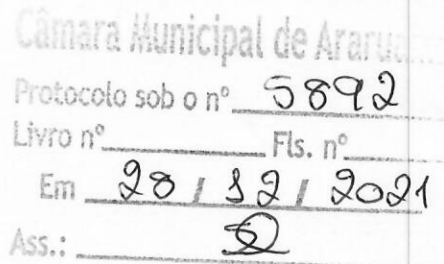 Câmara Municipal de Araruama
Protocolo sob o nº 5892
Livro nº Fls. nº
Em 28 / 12 / 2021
Ass.: